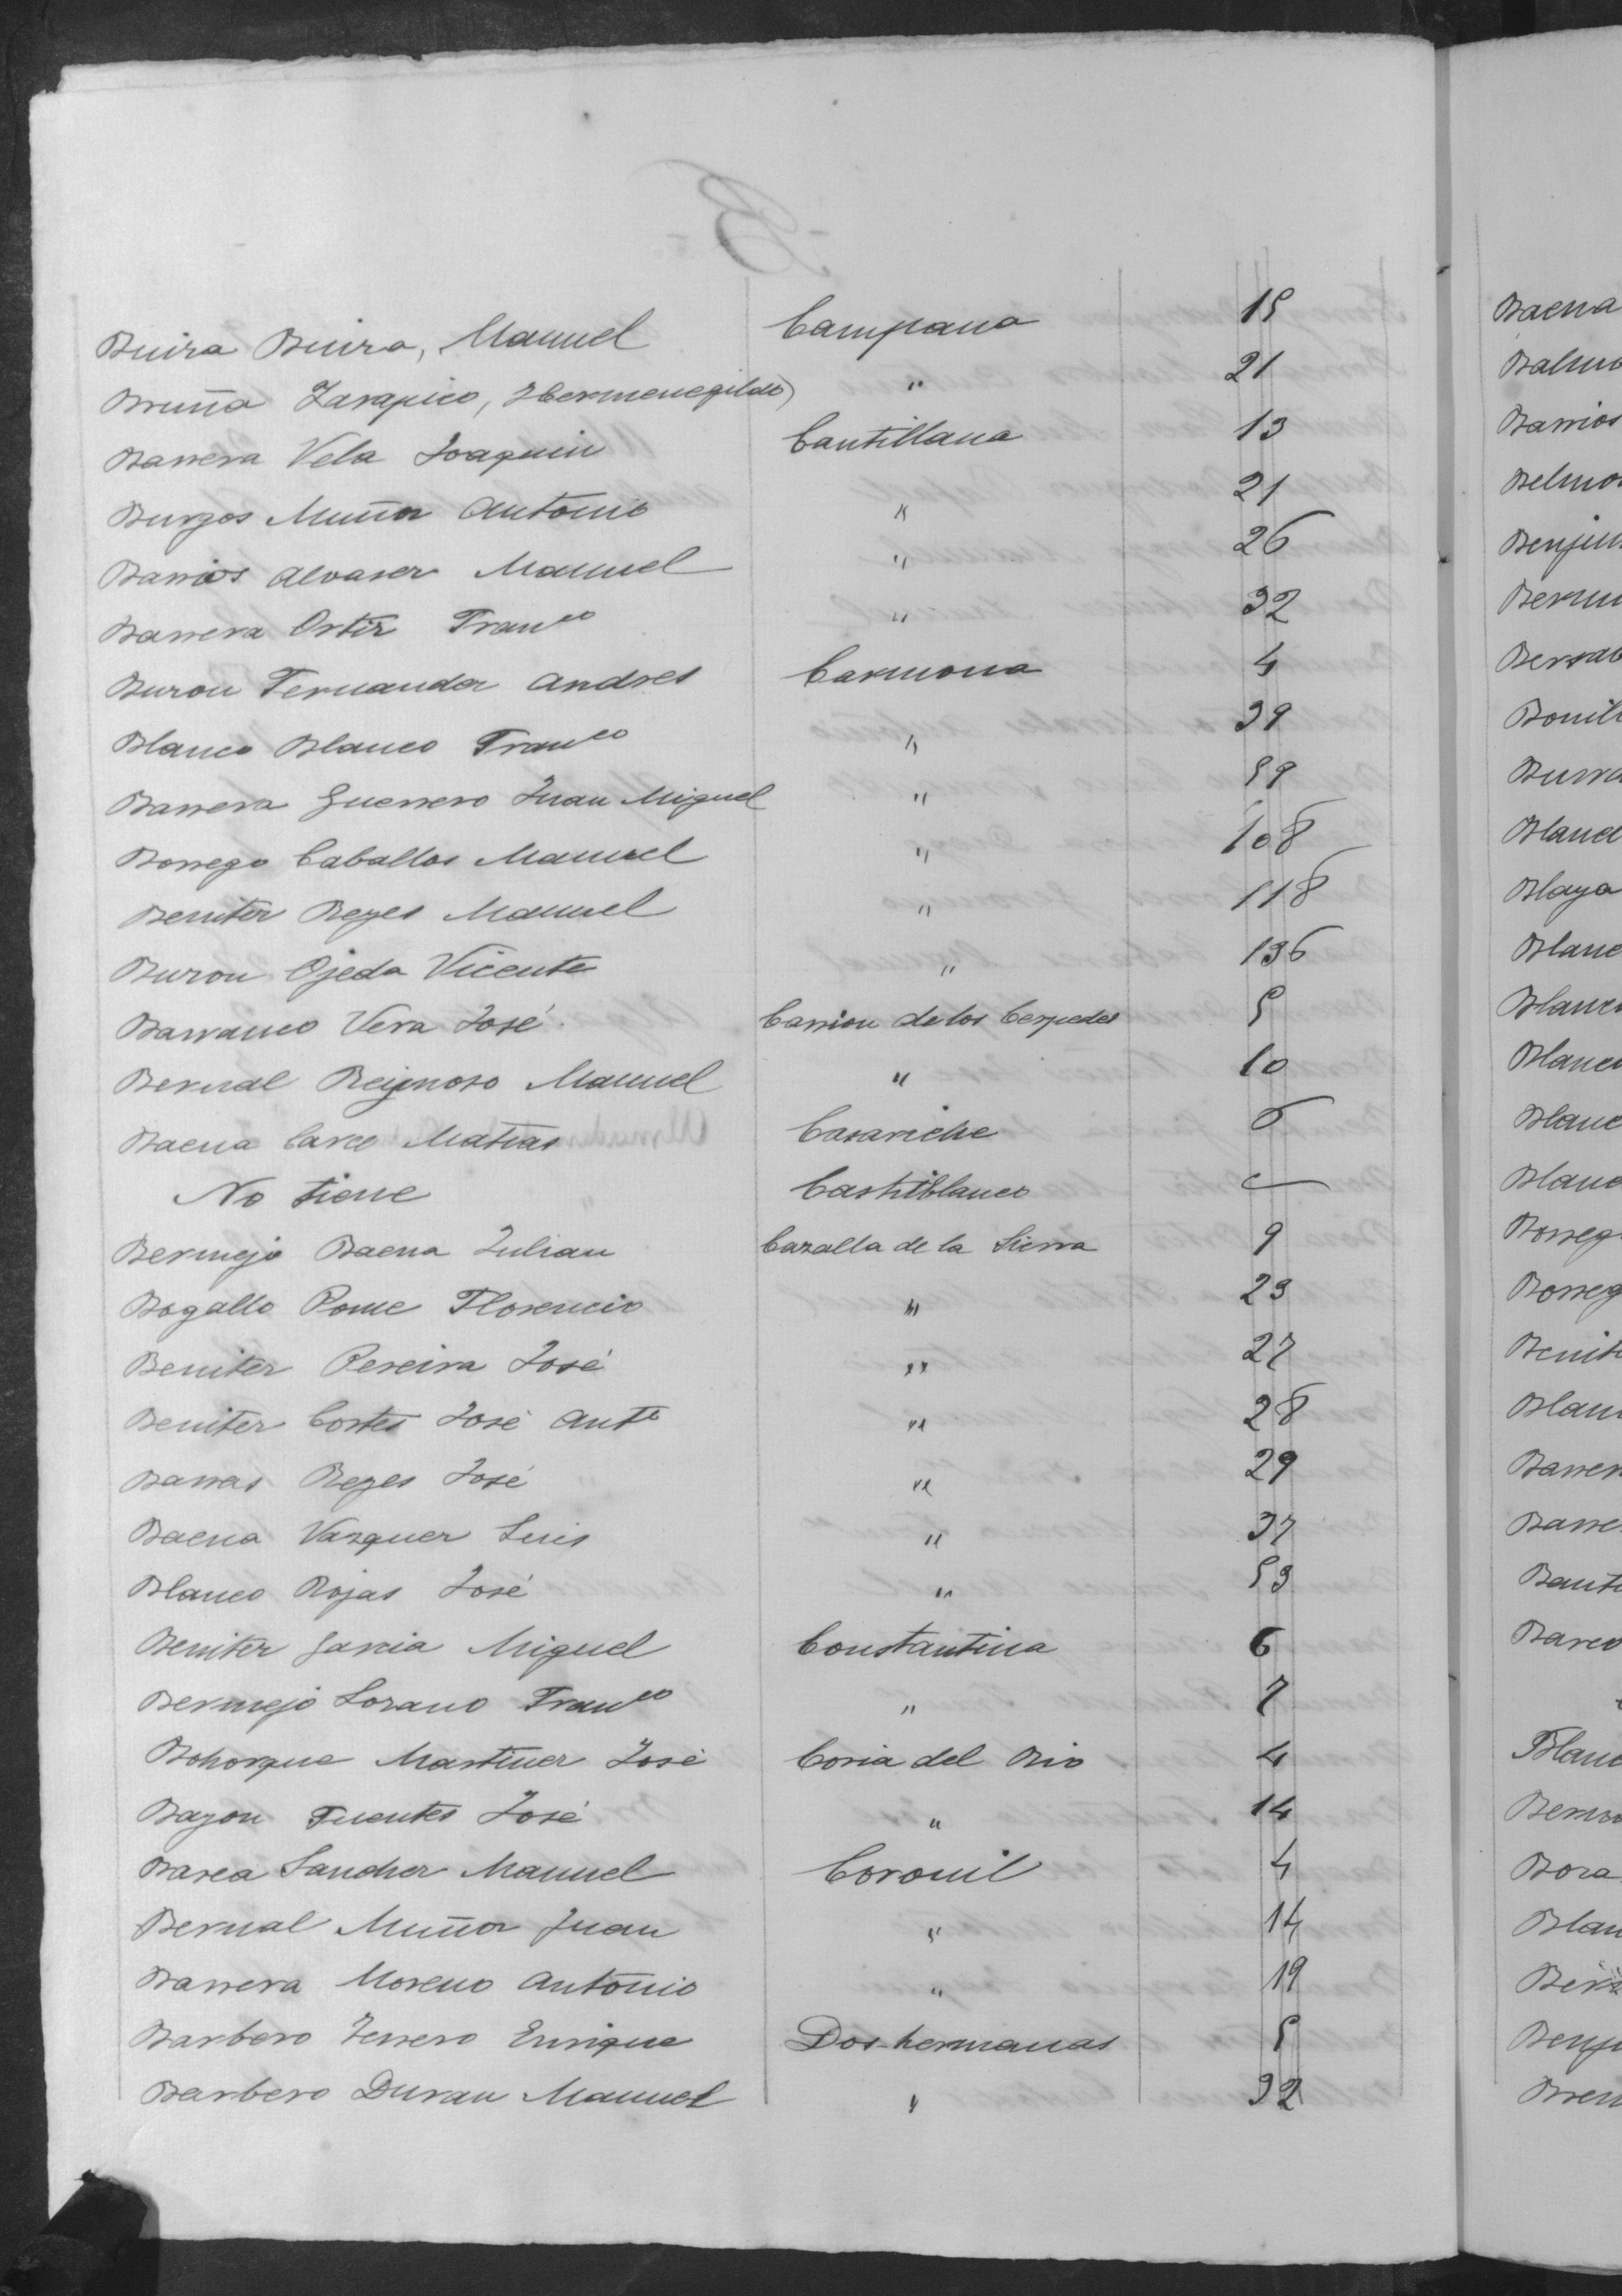 Buira Buira, Manuel Campana 15
Bruña Zarapico, Hermenegildo " 21
Barrera Vela Joaquin Cantillana 13
Burgos Muñoz Antonio " 21
Barrios Alvarez Manuel " 26
Barrera Ortiz Franco " 32
Buron Fernandez Andres Carmona 4
Blanco Blanco Franco " 39
Barrera Guerrero Juan Miguel " 59
Borrego Caballos Manuel " 108
Benitez Reyes Manuel " 118
Buron Ojeda Vicente " 136
Barranco Vera José Carrion de los Cespedes 5
Bernal Reijnoso Manuel " 10
Baena Matias Casariche 6
No tiene Castilblanco —
Bermejo Baena Julian Cazalla de la Sierra 9
Bogallo Pome Florencio " 23
Benitez Pereira José " 27
Benitez Cortes José Ant° " 28
Barras Reyes José " 29
Baena Vazquez Luis " 37
Blanco Rojas José " 53
Benitez Garcia Miguel Constantina 6
Bermejo Lozano Franco " 7
Bohorque Martinez José Coria del Rio 4
Bazon Fuentes José " 14
Barea Sanchez Manuel Coronil 4
Bernal Muñoz Juan " 14
Barrera Moreno Antonio " 19
Barbero Terrero Enrique Dos-hermanas 5
Barbero Duran Manuel " 32
Baena
Barrios